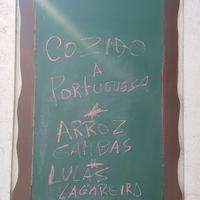 COZIDO
A
PORTUGUESA
ARROZ
GAMBAS
LULAS
LAGAREIRO